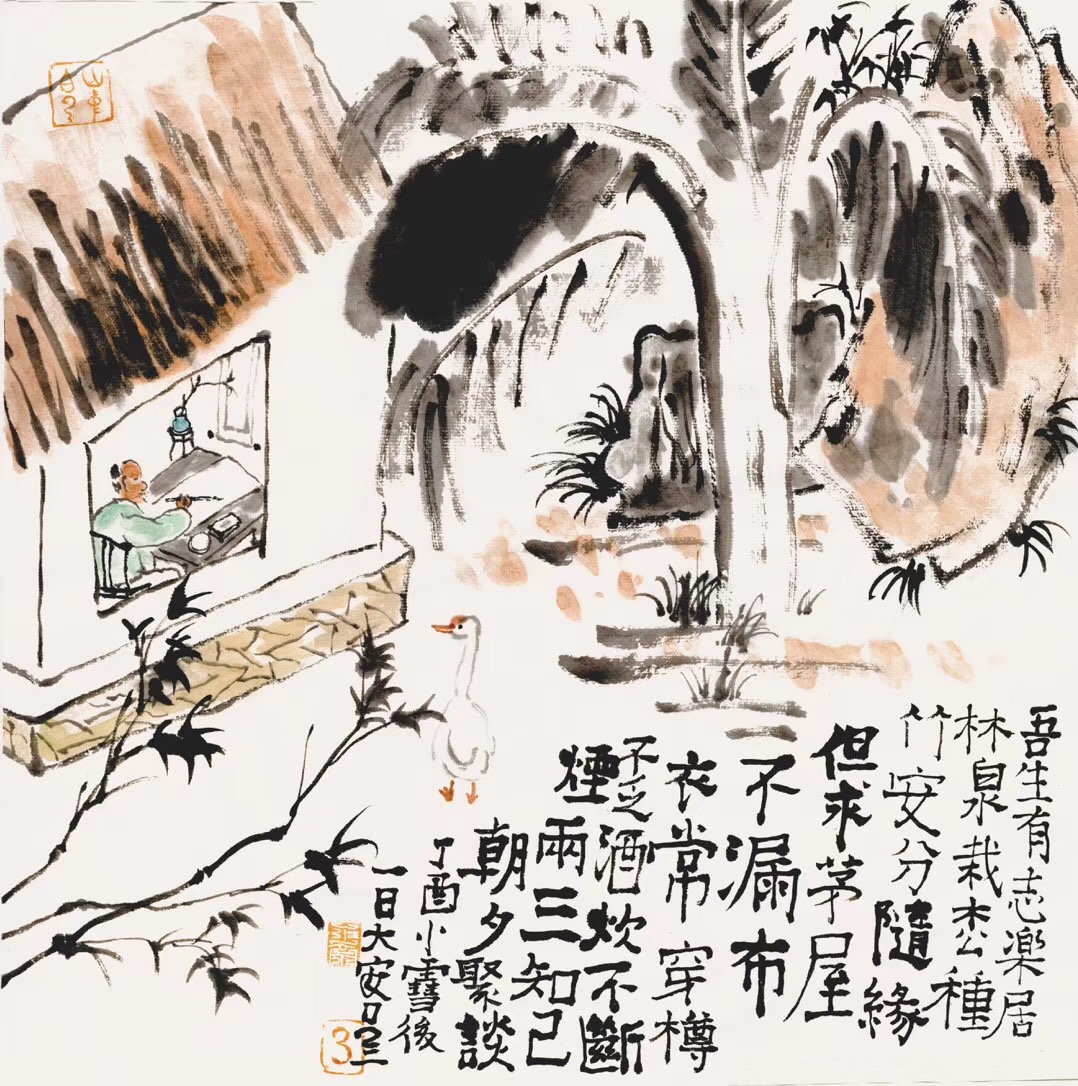 吾生有志楽居
林泉栽松種
竹安分隨緣
但求茅屋
不漏布
衣常穿樽
不乏酒炊不斷
煙兩三知己
朝夕聚談
丁酉小雪後
一日大安
3